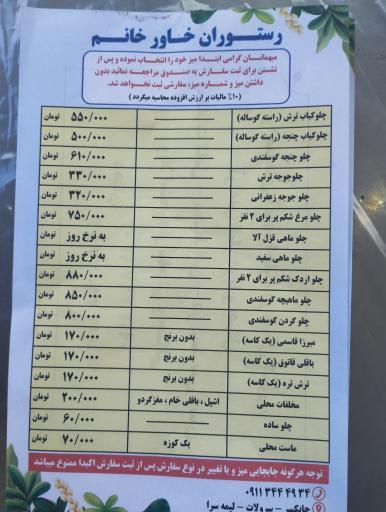 رستوران خاور خانم
میهمانان گرامی ابتدا میز خود را انتخاب نموده و پس از
نشستن برای ثبت سفارش به صندوق مراجعه نمائید بدون
داشتن میز و شماره میز، سفارشی ثبت نخواهد شد.
(۱۰٪ مالیات بر ارزش افزوده محاسبه میگردد)
چلوکباب ترش (راسته گوساله) ۵۵۰/۰۰۰ تومان
چلوکباب چنجه (راسته گوساله) ۵۰۰/۰۰۰ تومان
چلو چنجه گوسفندی ۶۱۰/۰۰۰ تومان
چلوجوجه ترش ۳۳۰/۰۰۰ تومان
چلو جوجه زعفرانی ۳۲۰/۰۰۰ تومان
چلو مرغ شکم پر برای ۲ نفر ۷۵۰/۰۰۰ تومان
چلو ماهی قزل آلا به نرخ روز تومان
چلو ماهی سفید به نرخ روز تومان
چلو اردک شکم پر برای ۲ نفر ۸۸۰/۰۰۰ تومان
چلو ماهیچه گوسفندی ۸۵۰/۰۰۰ تومان
چلو گردن گوسفندی ۸۰۰/۰۰۰ تومان
میرزا قاسمی (یک کاسه) بدون برنج ۱۷۰/۰۰۰ تومان
باقلی قاتوق (یک کاسه) بدون برنج ۱۷۰/۰۰۰ تومان
ترش تره (یک کاسه) بدون برنج ۱۷۰/۰۰۰ تومان
مخلفات محلی اشپل ، باقلی خام ، مغزگردو ۲۰۰/۰۰۰ تومان
چلو ساده ۶۰/۰۰۰ تومان
ماست محلی یک کوزه ۷۰/۰۰۰ تومان
توجه هرگونه جابجایی میز و یا تغییر در نوع سفارش پس از ثبت سفارش اکیدا ممنوع میباشد
۰۹۱۱ ۳۴۴ ۴۹ ۳۴
چابکسر - سرولات - لیمه سرا